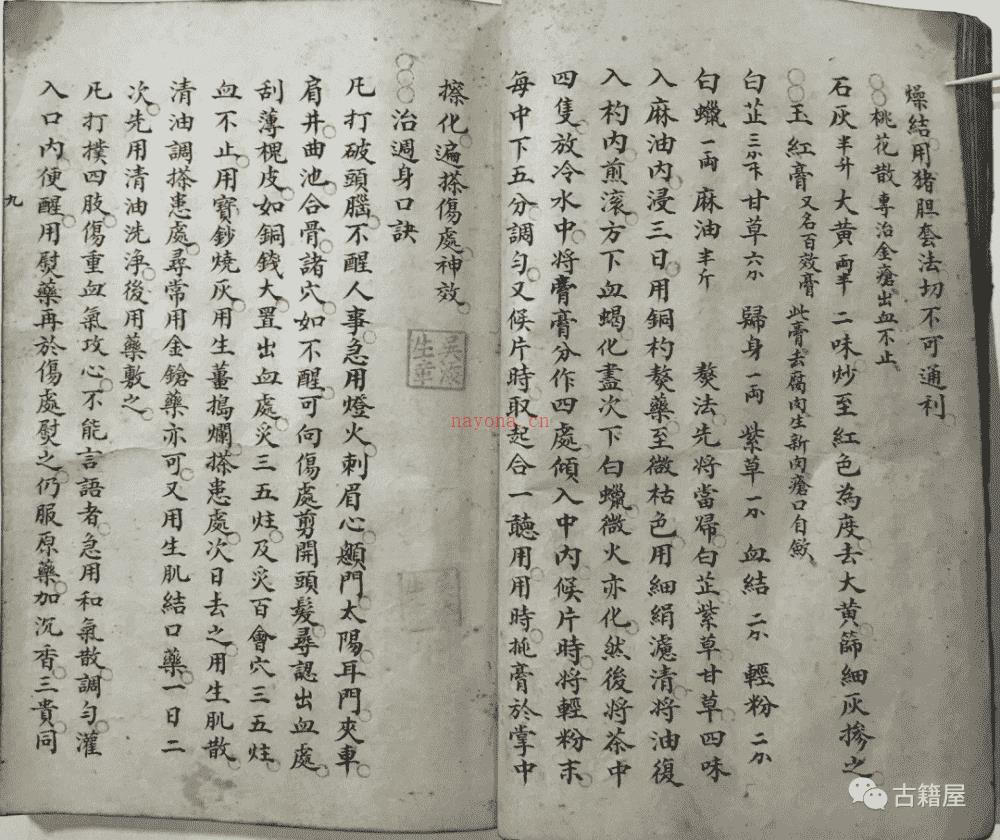 燥結用猪胆套法切不可通利
○○桃花散 專治金瘡出血不止
石灰半升 大黄両半 二味炒至紅色為度去大黄篩細灰摻之
○○玉紅膏又名百效膏 此膏去腐肉生新肉瘡口自斂
白芷 甘草 歸身一両 紫草 血結 輕粉
白蠟一両 麻油半斤 熬法先將當歸白芷紫草甘草四味
入麻油内浸三日用銅杓熬藥至微枯色用細絹濾清將油復
入杓内煎滚方下血蝎化盡次下白蠟微火亦化然後將茶中
四隻放冷水中將膏分作四處傾入中内候片時將輕粉末
每中下五分調匀又候片時取起合一聽用用時挑膏於掌中
擦化遍搽傷處神效
○○○治週身口訣
凡打破頭腦不醒人事急用燈火刺眉心顖門太陽耳門夾車
肩井曲池合骨諸穴如不醒可向傷處剪開頭髮尋認出血處
刮薄槐皮如銅錢大置出血處灸三五炷及灸百會穴三五炷
血不止用寳鈔燒灰用生薑搗爛搽患處次日去之用生肌散
清油調搽患處尋常用金鎗藥亦可又用生肌結口藥一日二
次先用清油洗淨後用藥敷之
凡打撲四肢傷重血氣攻心不能言語者急用和氣散調匀灌
入口内便醒用熨藥再於傷處熨之仍服原藥加沉香三貴同
九
nayona.cn
古籍屋